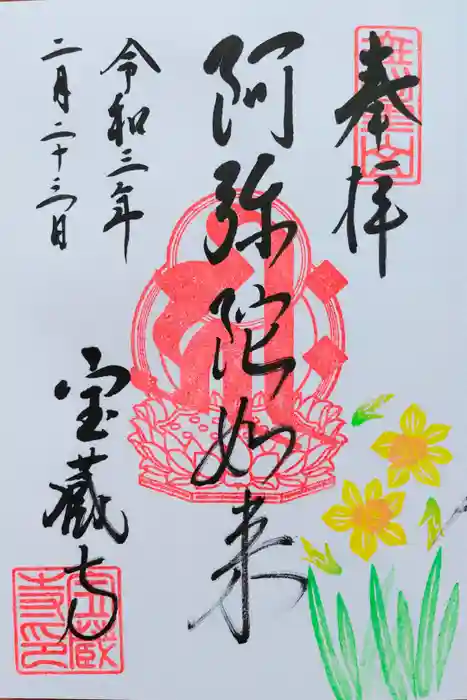 奉拝
阿弥陀如来
令和三年
二月二十三日
宝蔵寺
宝蔵寺印